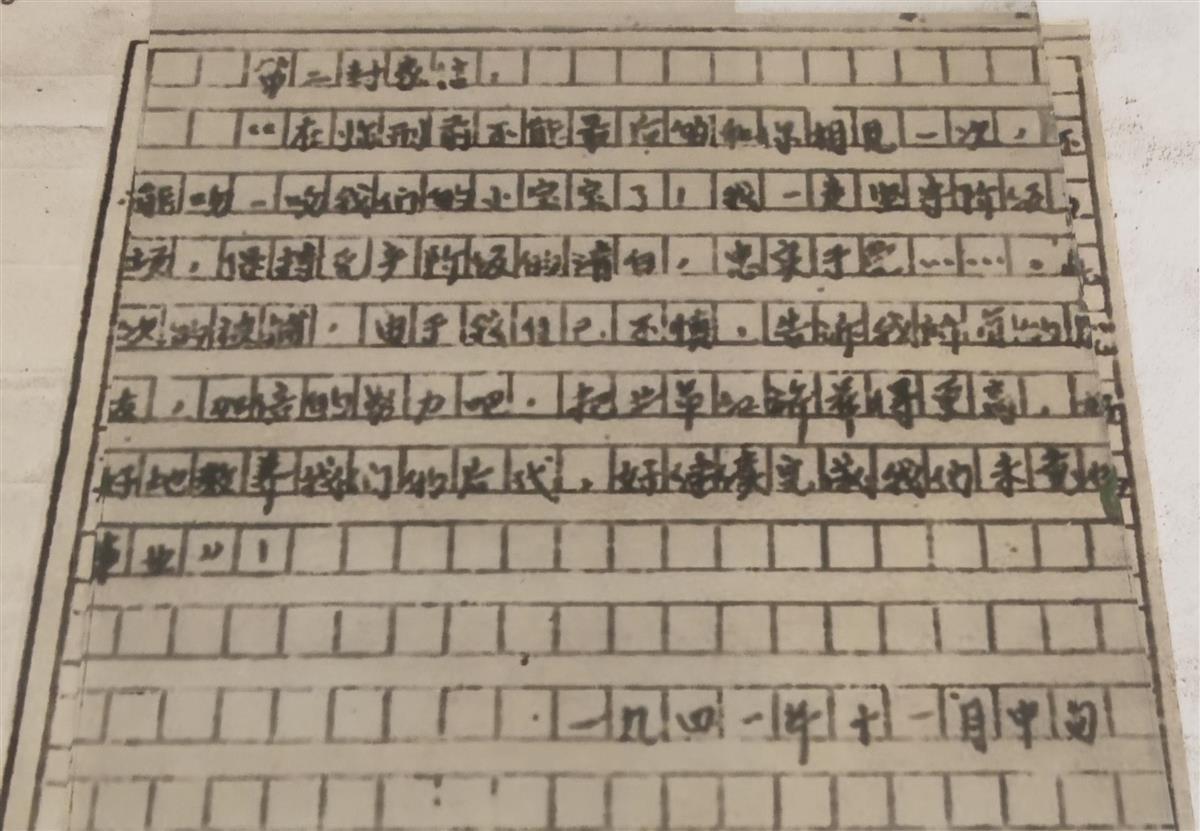 第二封家信：
“在临刑前不能最后的和你相见一次，不
能吻一吻我们的小宝宝了！我一定坚守阶级立
场，保持无产阶级的清白，忠实于党……。
次的被捕，由于轻信，不慎，告诉我所有的
友，加倍的努力吧，把革命红旗举得更高，好
好地教养我们的后代，好继续完成我们未竟的
事业”！
一九四一年十一月中旬